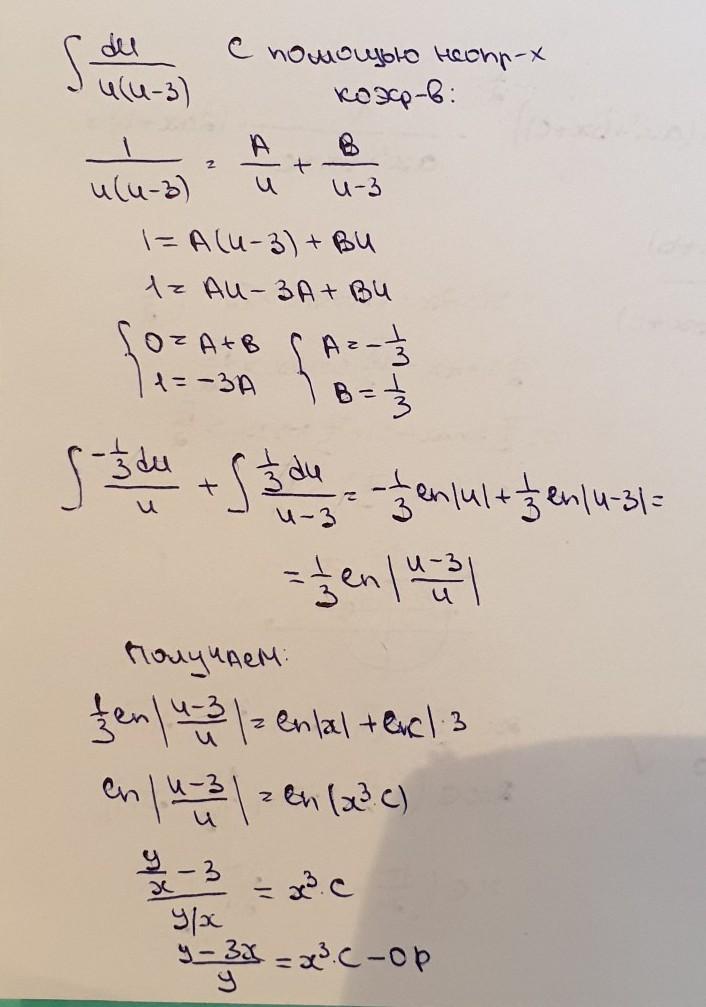 ∫ du / u(u-3) с помощью неопр-х
коэф-в:
1 / u(u-3) = A / u + B / u-3
1 = A(u-3) + Bu
1 = Au - 3A + Bu
{ 0 = A+B { A = -1/3
1 = -3A B = 1/3
∫ -1/3 du / u + ∫ 1/3 du / u-3 = -1/3 ln|u| + 1/3 ln|u-3| =
= 1/3 ln | u-3 / u |
Получаем:
1/3 ln | u-3 / u | = ln|x| + ln c | · 3
ln | u-3 / u | = ln (x³·C)
y/x - 3 / y/x = x³·C
y - 3x / y = x³·C - ОР